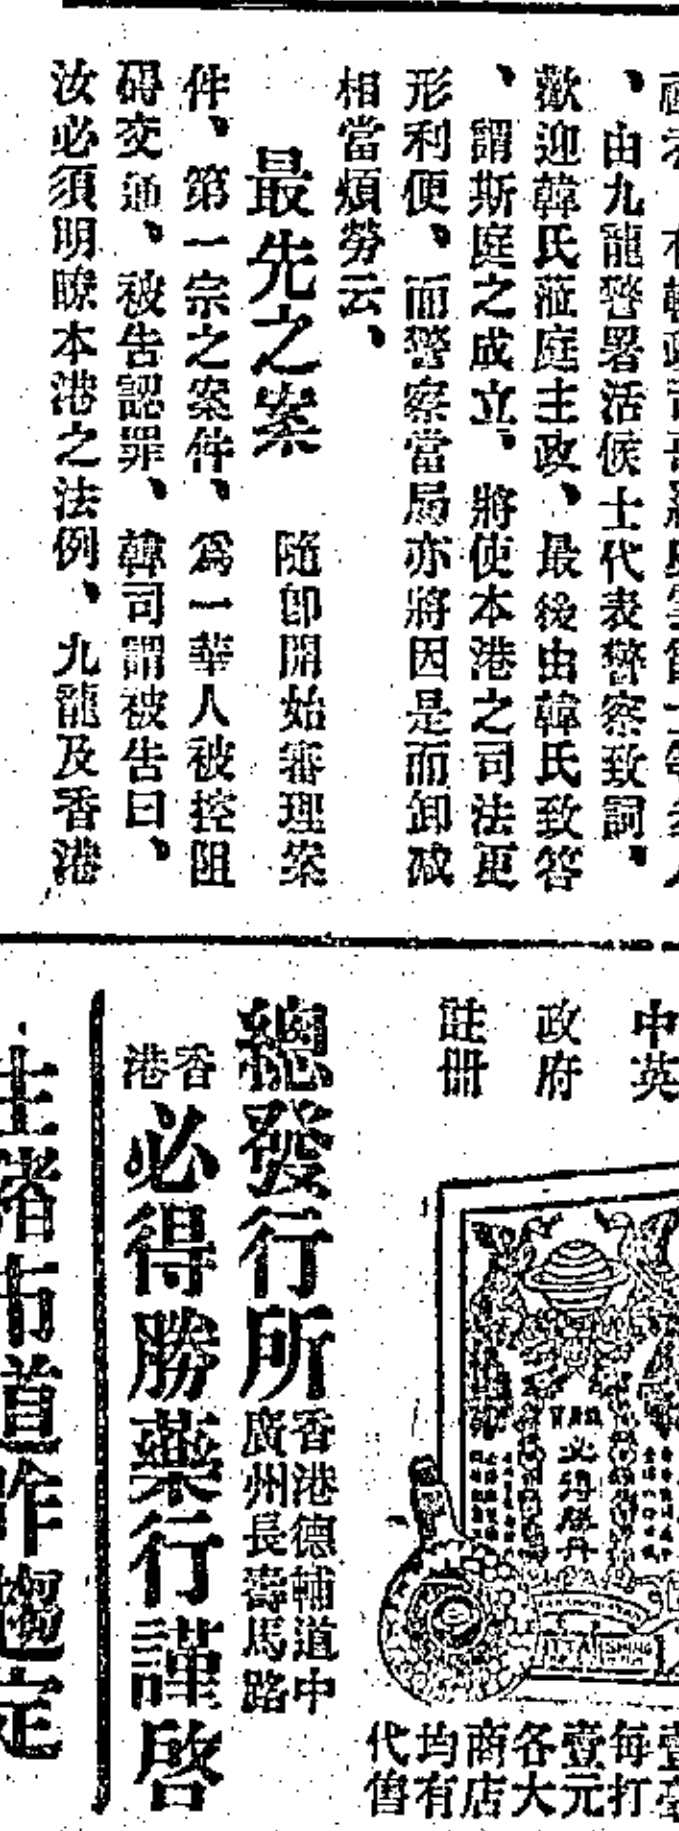 、由九龍警署活候士代表警察致詞、
歡迎韓氏蒞庭主政、最後由韓氏致答
、謂斯庭之成立、將使本港之司法更
形利便、而警察當局亦將因是而卸減
相當煩勞云、
最先之案　隨卽開始審理案
件、第一宗之案件、爲一華人被控阻
碍交通、被告認罪、韓司謂被告曰、
汝必須明瞭本港之法例、九龍及香港
中英
政府
註冊
必得勝丹
每打
壹元
各大
商店
均有
代售
總發行所
香港德輔道中
廣州長壽馬路
香港
必得勝藥行謹啓